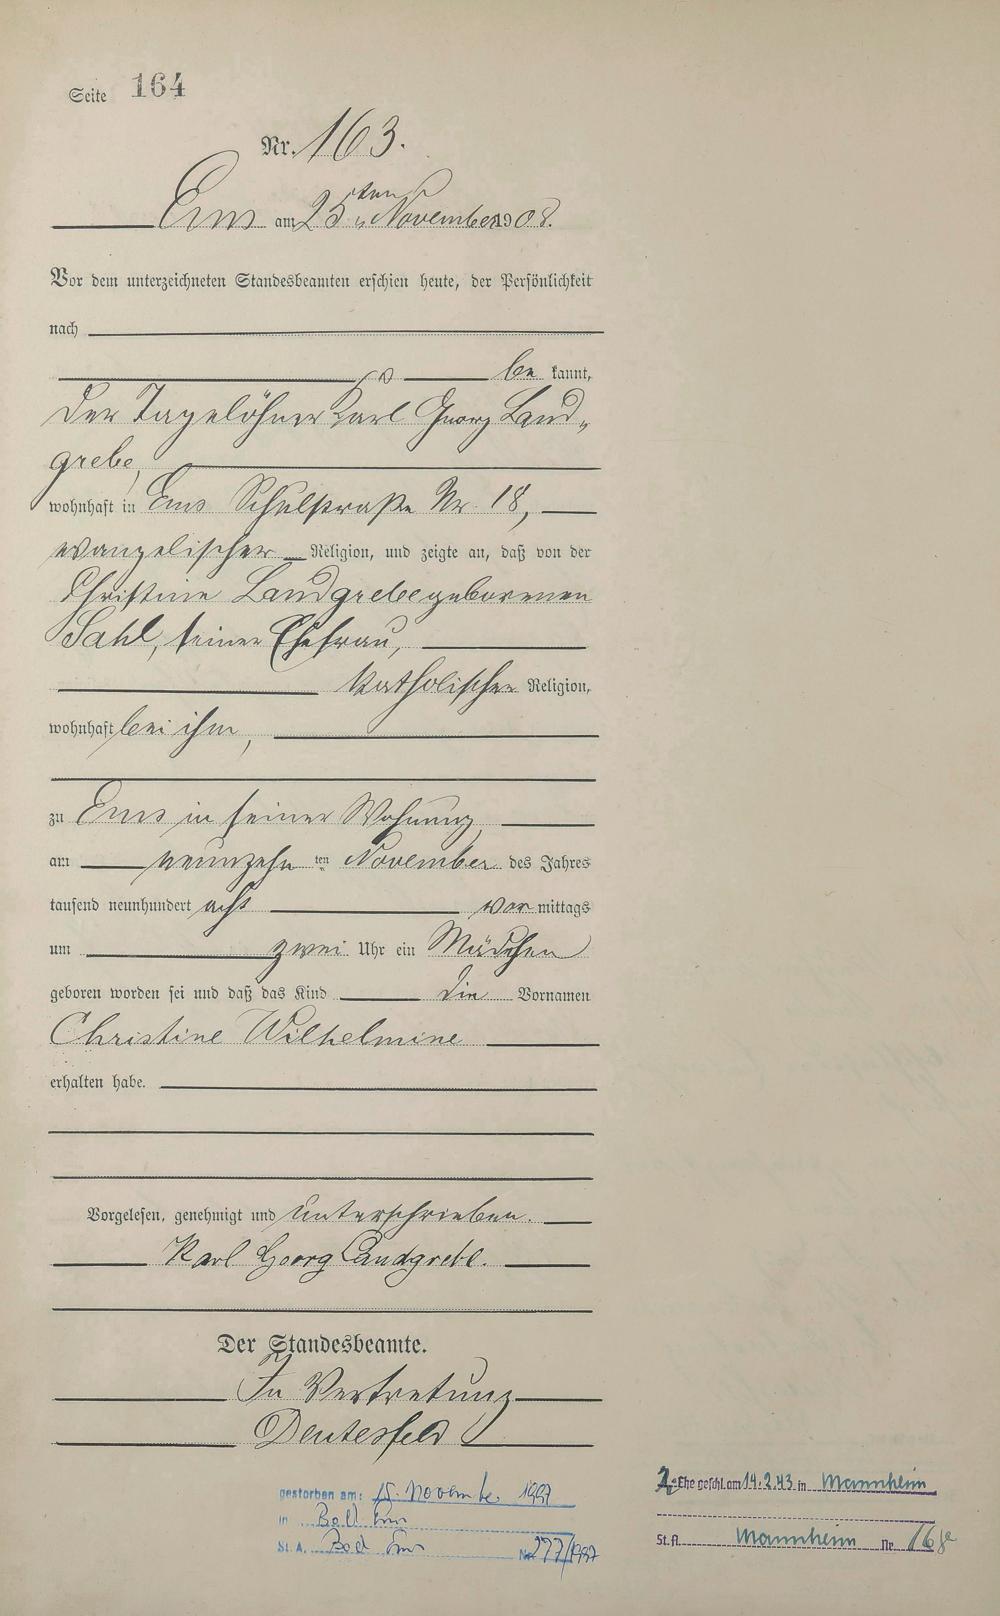 Seite 164
Nr. 163.
Ems am 25ten November 1908.
Vor dem unterzeichneten Standesbeamten erschien heute, der Persönlichkeit
nach
be kannt,
der Tagelöhner Karl Georg Land„
grebe,
wohnhaft in Ems Schulstraße Nr. 18,
evangelischer Religion, und zeigte an, daß von der
Christine Landgrebe geborenen
Sahl, seiner Ehefrau,
katholischer Religion,
wohnhaft bei ihm,
zu Ems in seiner Wohnung,
am neunzehn ten November des Jahres
tausend neunhundert acht vor mittags
um zwei Uhr ein Mädchen
geboren worden sei und daß das Kind die Vornamen
Christine Wilhelmine
erhalten habe.
Vorgelesen, genehmigt und unterschrieben.
Karl Georg Landgrebe.
Der Standesbeamte.
In Vertretung
Deutesfeld
gestorben am: 15. November 1987
in Bad Ems
St. A. Bad Ems Nr. 277/1987
2. Ehe geschl. am 14.2.43 in Mannheim
St. A. Mannheim Nr.